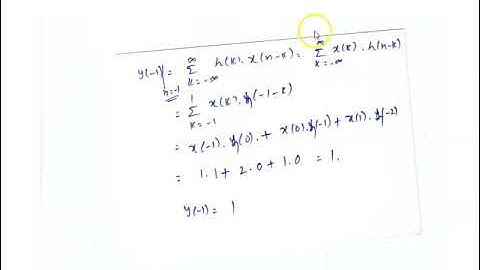 y(-1)| n=-1 = ∞ Σ k=-∞ h(k). x(n-k) = ∞ Σ k=-∞ x(k). h(n-k)
= 1 Σ k=-1 x(k). h(-1-k)
= x(-1). h(0). + x(0). h(-1) + x(1). h(-2)
= 1.1 + 2.0 + 1.0 = 1.
y(-1) = 1